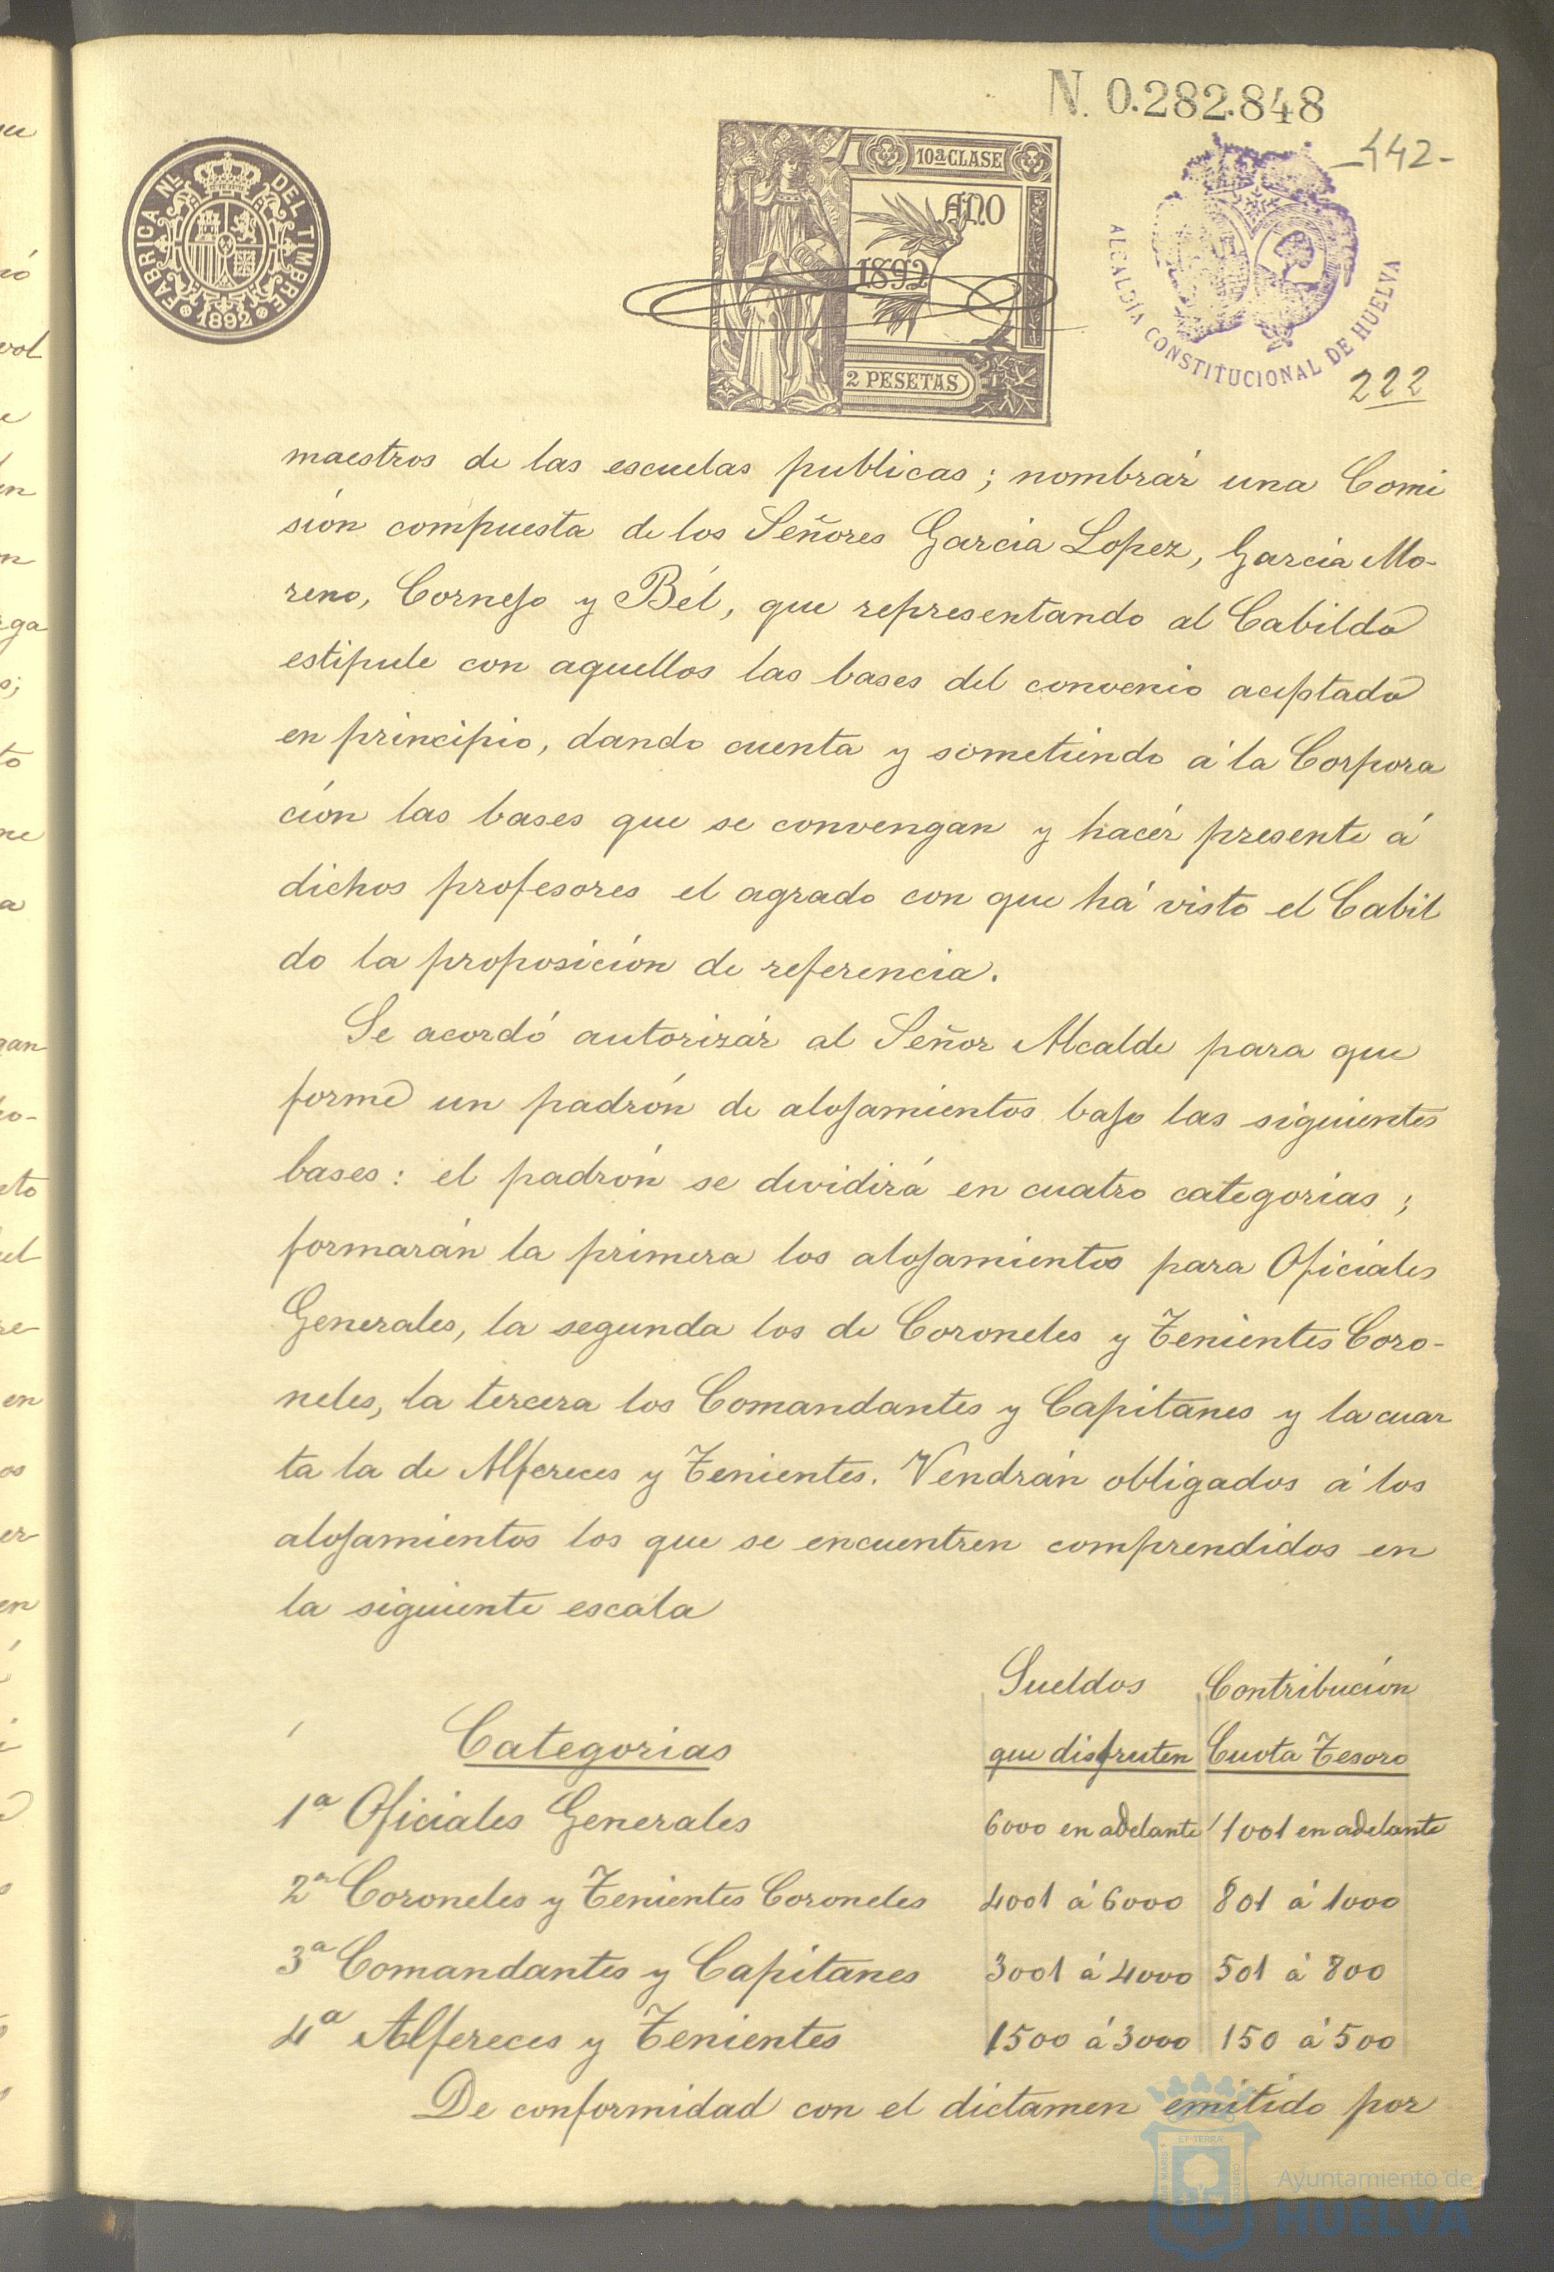 N. 0.282.848
-442-
FABRICA Nal. DEL TIMBRE
1892
10ª CLASE
AÑO
1892
2 PESETAS
ALCALDÍA CONSTITUCIONAL DE HUELVA
222
maestros de las escuelas publicas; nombrár una Comi
sión compuesta de los Señores Garcia Lopez, Garcia Mo-
reno, Cornejo y Bél, que representando al Cabildo
estipule con aquellos las bases del convenio aceptado
en principio, dando cuenta y sometiendo á la Corpora
ción las bases que se convengan y hacér presente á
dichos profesores el agrado con que há visto el Cabil
do la proposición de referencia.
Se acordó autorizár al Señor Alcalde para que
forme un padrón de alojamientos bajo las siguientes
bases: el padrón se dividirá en cuatro categorias;
formarán la primera los alojamientos para Oficiales
Generales, la segunda los de Coroneles y Tenientes Coro-
neles, la tercera los Comandantes y Capitanes y la cuar
ta la de Alfereces y Tenientes. Vendrán obligados á los
alojamientos los que se encuentren comprendidos en
la siguiente escala
Sueldos Contribución
Categorias que disfruten Cuota Tesoro
1ª Oficiales Generales 6000 en adelante 1001 en adelante
2ª Coroneles y Tenientes Coroneles 4001 á 6000 801 á 1000
3ª Comandantes y Capitanes 3001 á 4000 501 á 800
4ª Alfereces y Tenientes 1500 á 3000 150 á 500
De conformidad con el dictamen emitido por
Ayuntamiento de
HUELVA